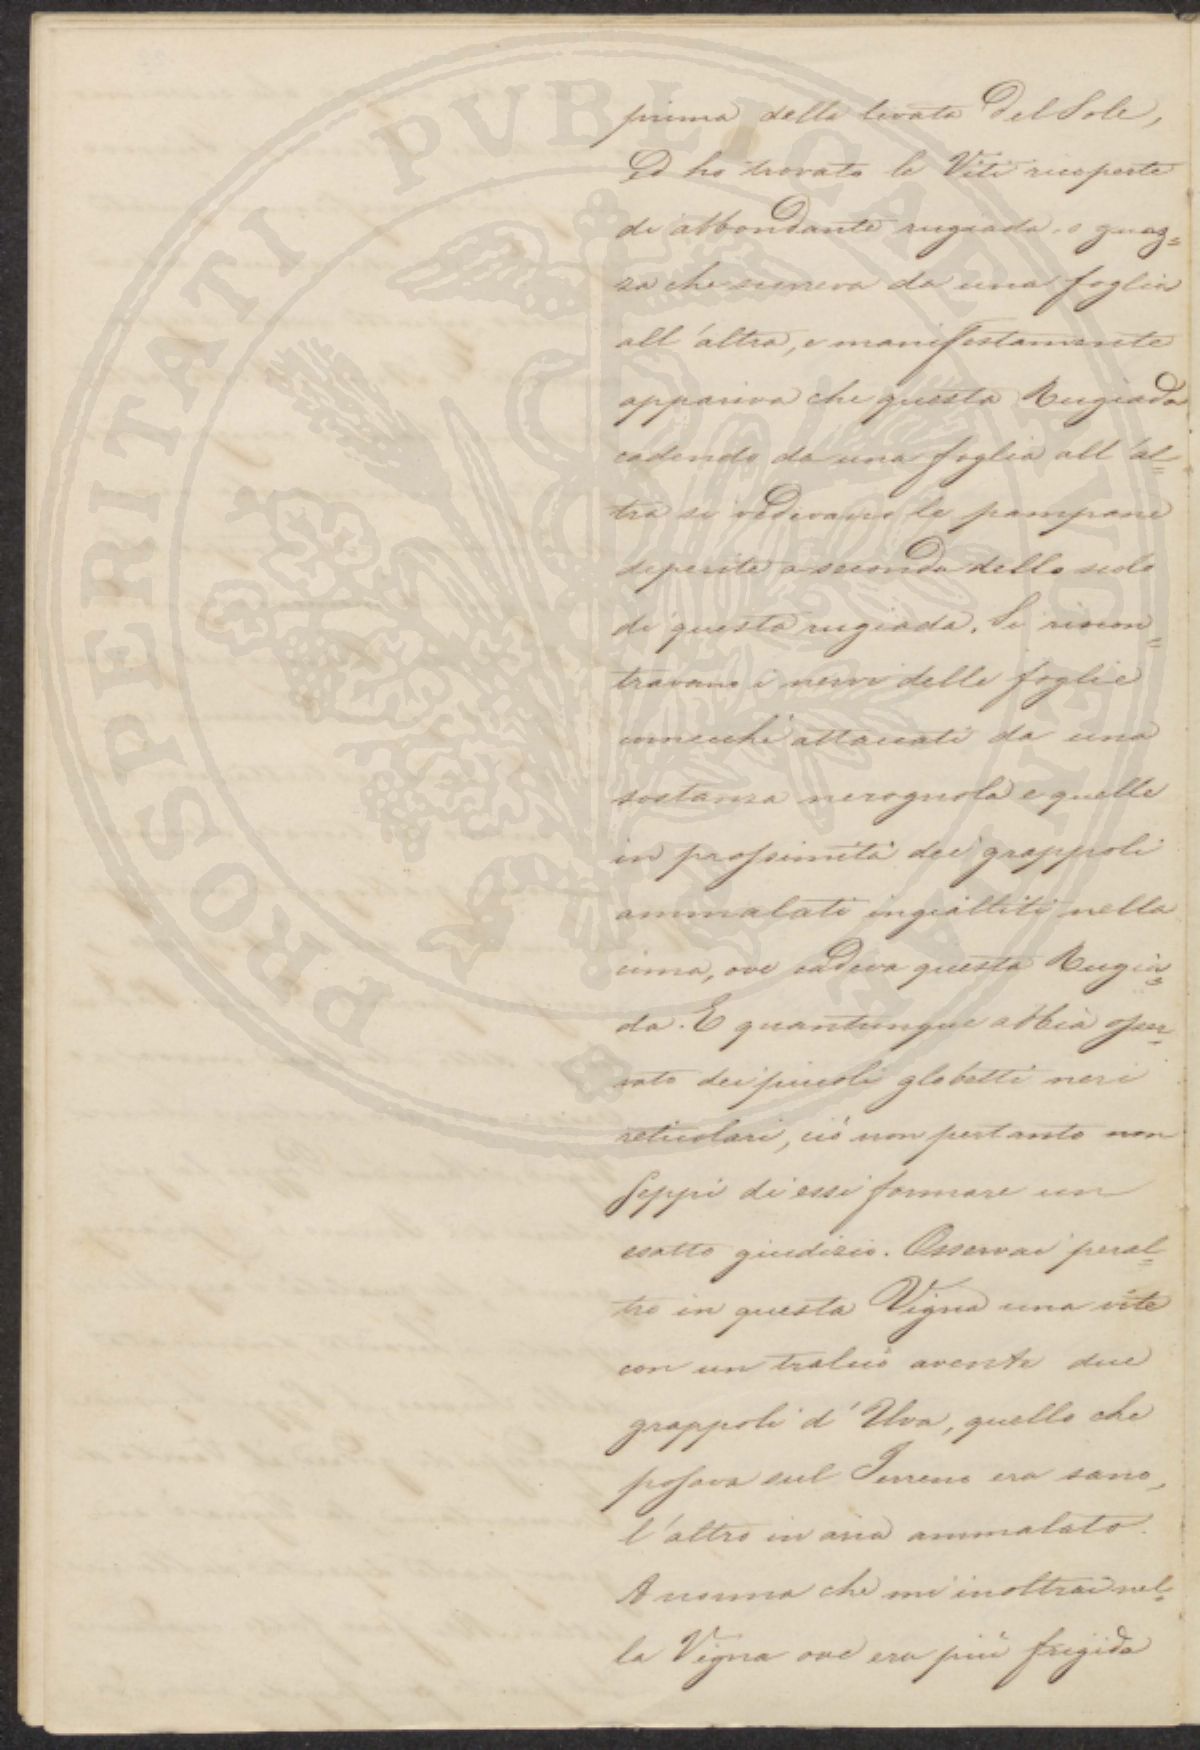 PROSPERITATI PVBLICAE AVGENDAE
prima della levata Del Sole,
Ed ho trovato le Viti ricoperte
di abbondante rugiada, o guaz=
za che scorreva da una foglia
all'altra, e manifestamente
appariva che questa Rugiada
cadendo da una foglia all'al=
tra si vedevano le pampane
deperite a seconda dello scolo
di questa rugiada. Si riscon=
travano i nervi delle foglie
comecchè attaccati da una
sostanza nerognola e quelle
in prossimità dei grappoli
ammalati ingialliti nella
cima, ove cadeva questa Rugia=
da. E quantunque abbia osser=
vato dei piccoli globetti neri
reticolari, ciò non pertanto non
seppi di essi formare un
esatto giudizio. Osservai peral=
tro in questa Vigna una vite
con un tralcio avente due
grappoli d'Uva, quello che
posava sul Terreno era sano,
l'altro in aria ammalato.
A norma che mi inoltrai nel=
la Vigna ove era più frigida